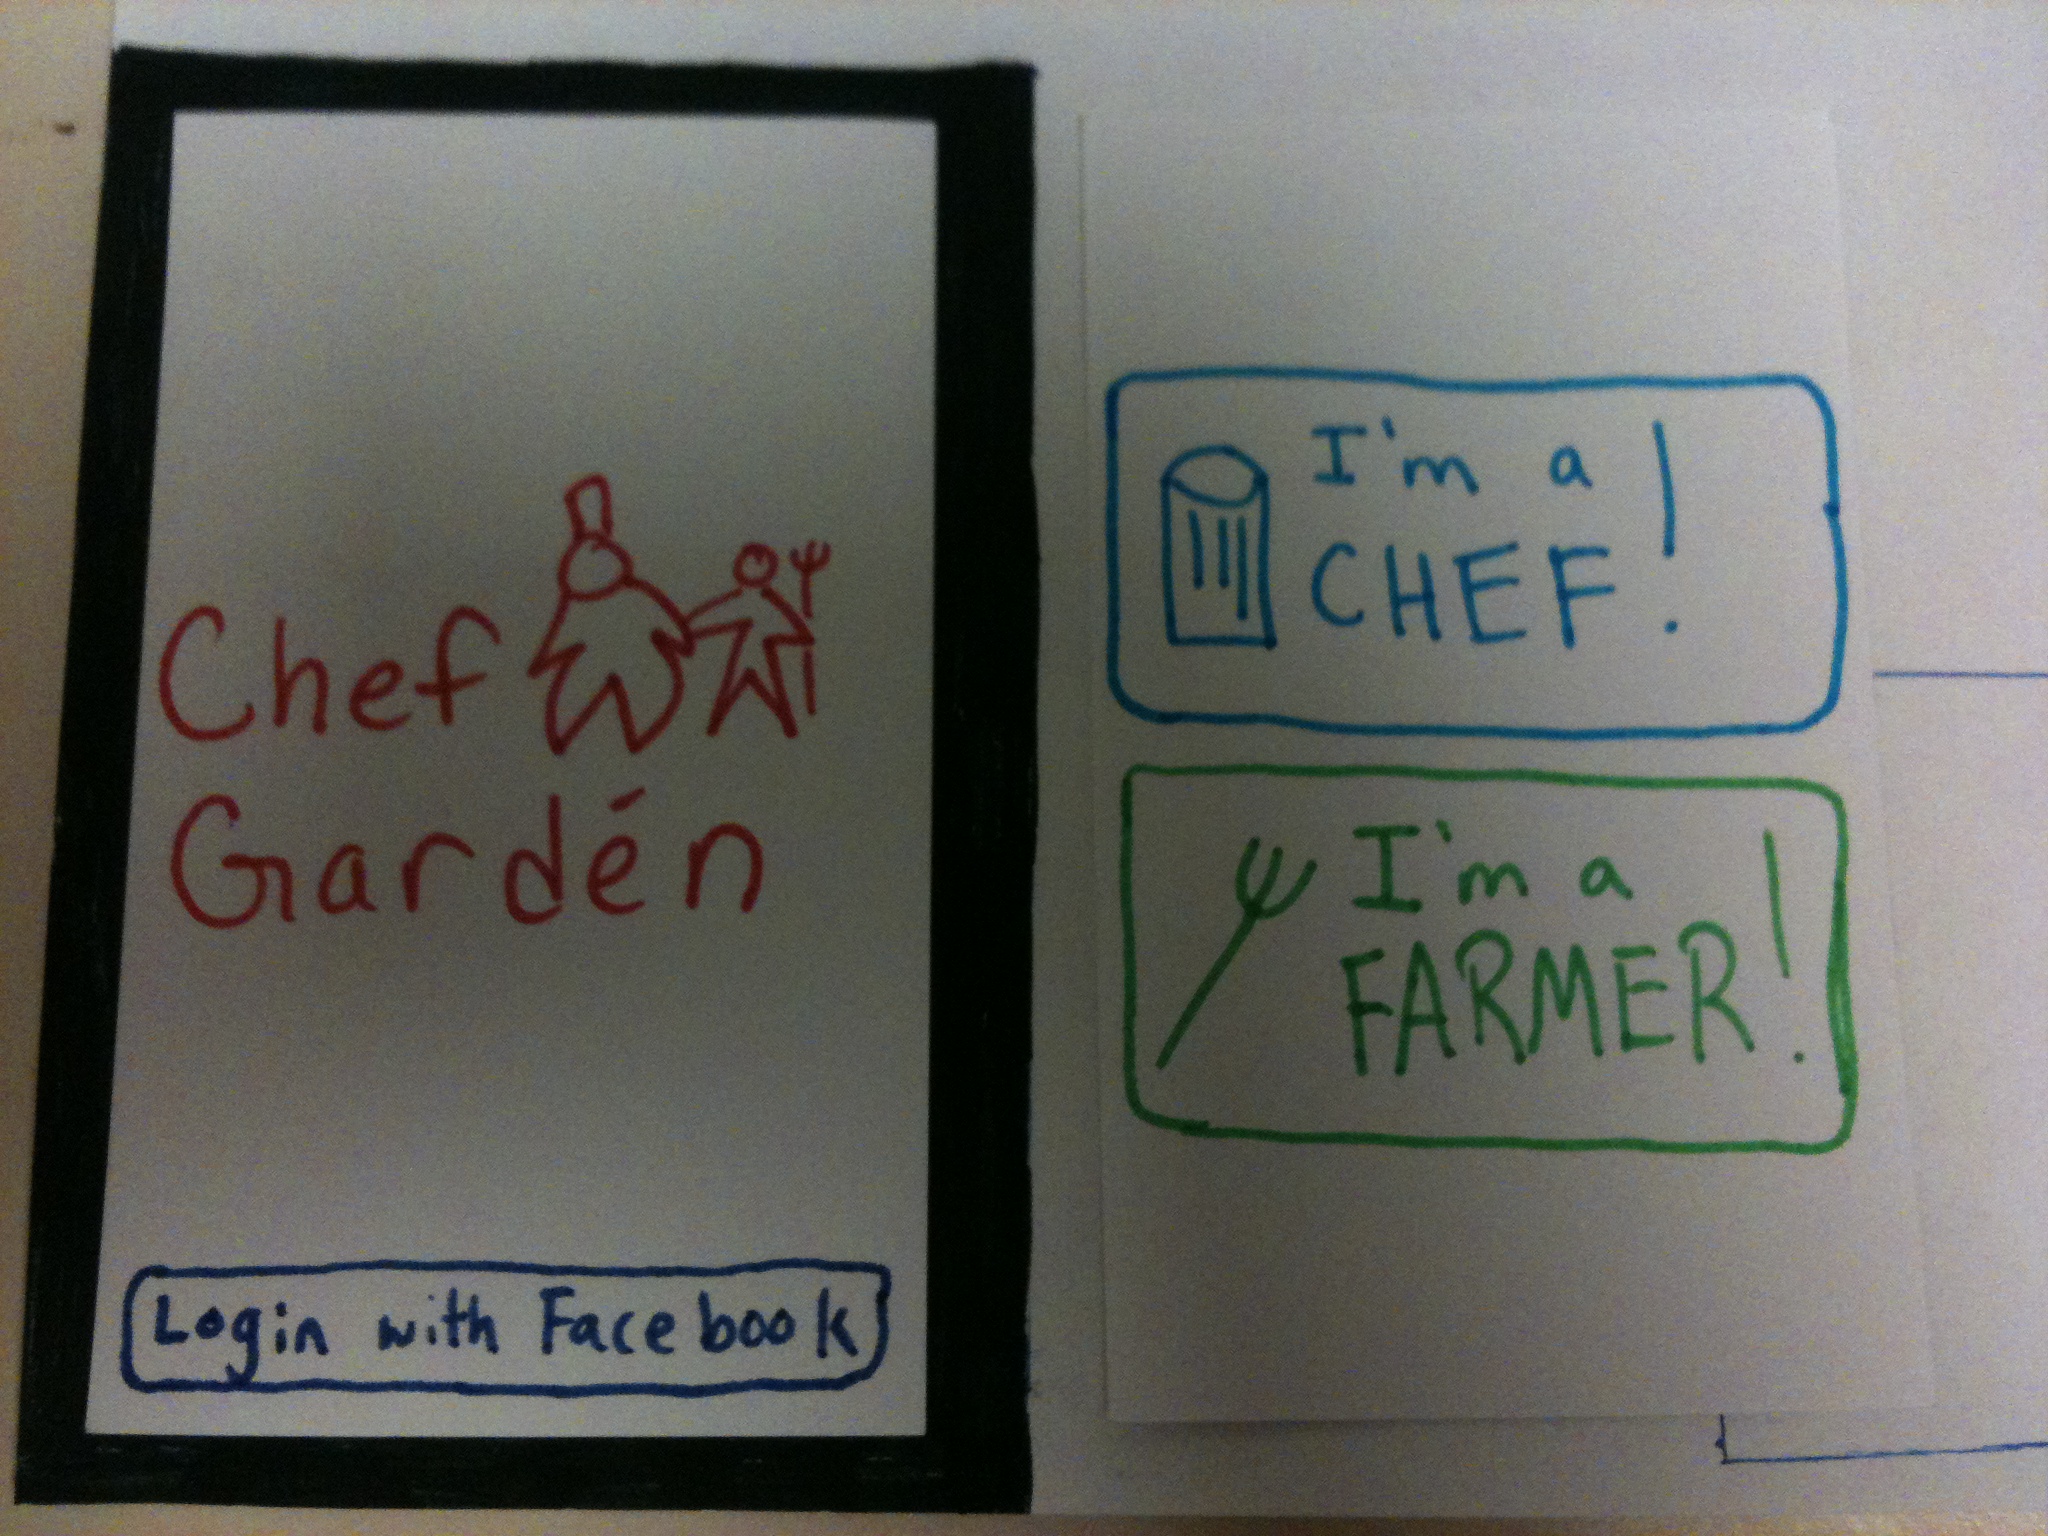 Chef
Gardén
Login with Facebook
I'm a
CHEF!
I'm a
FARMER!